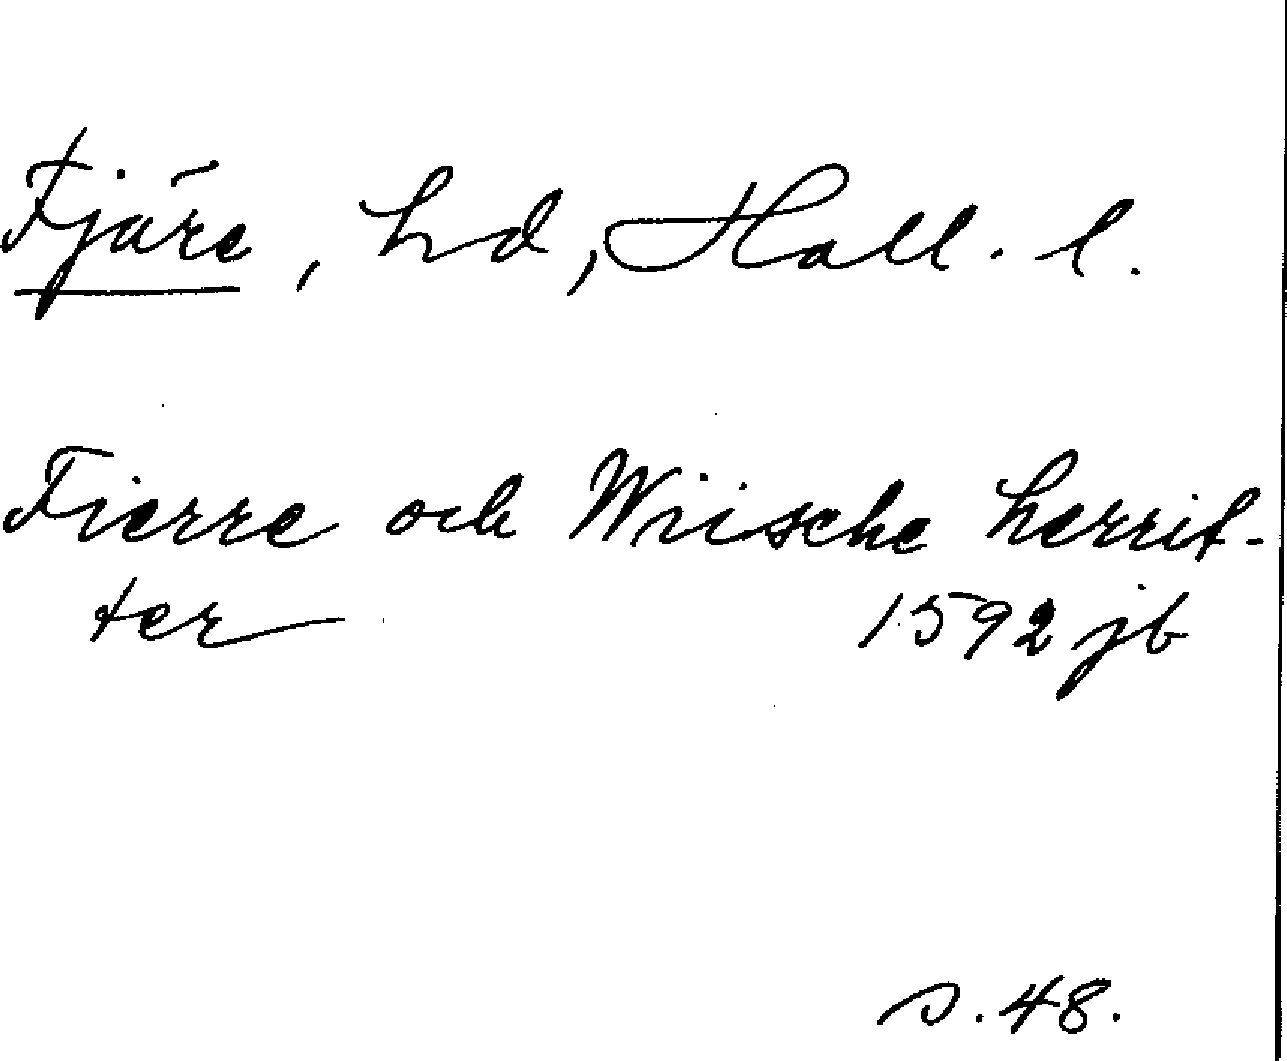 Fjäre, hd, Hall. l.
Fierre och Wiische herrit-
ter 1592 jb
s. 48.